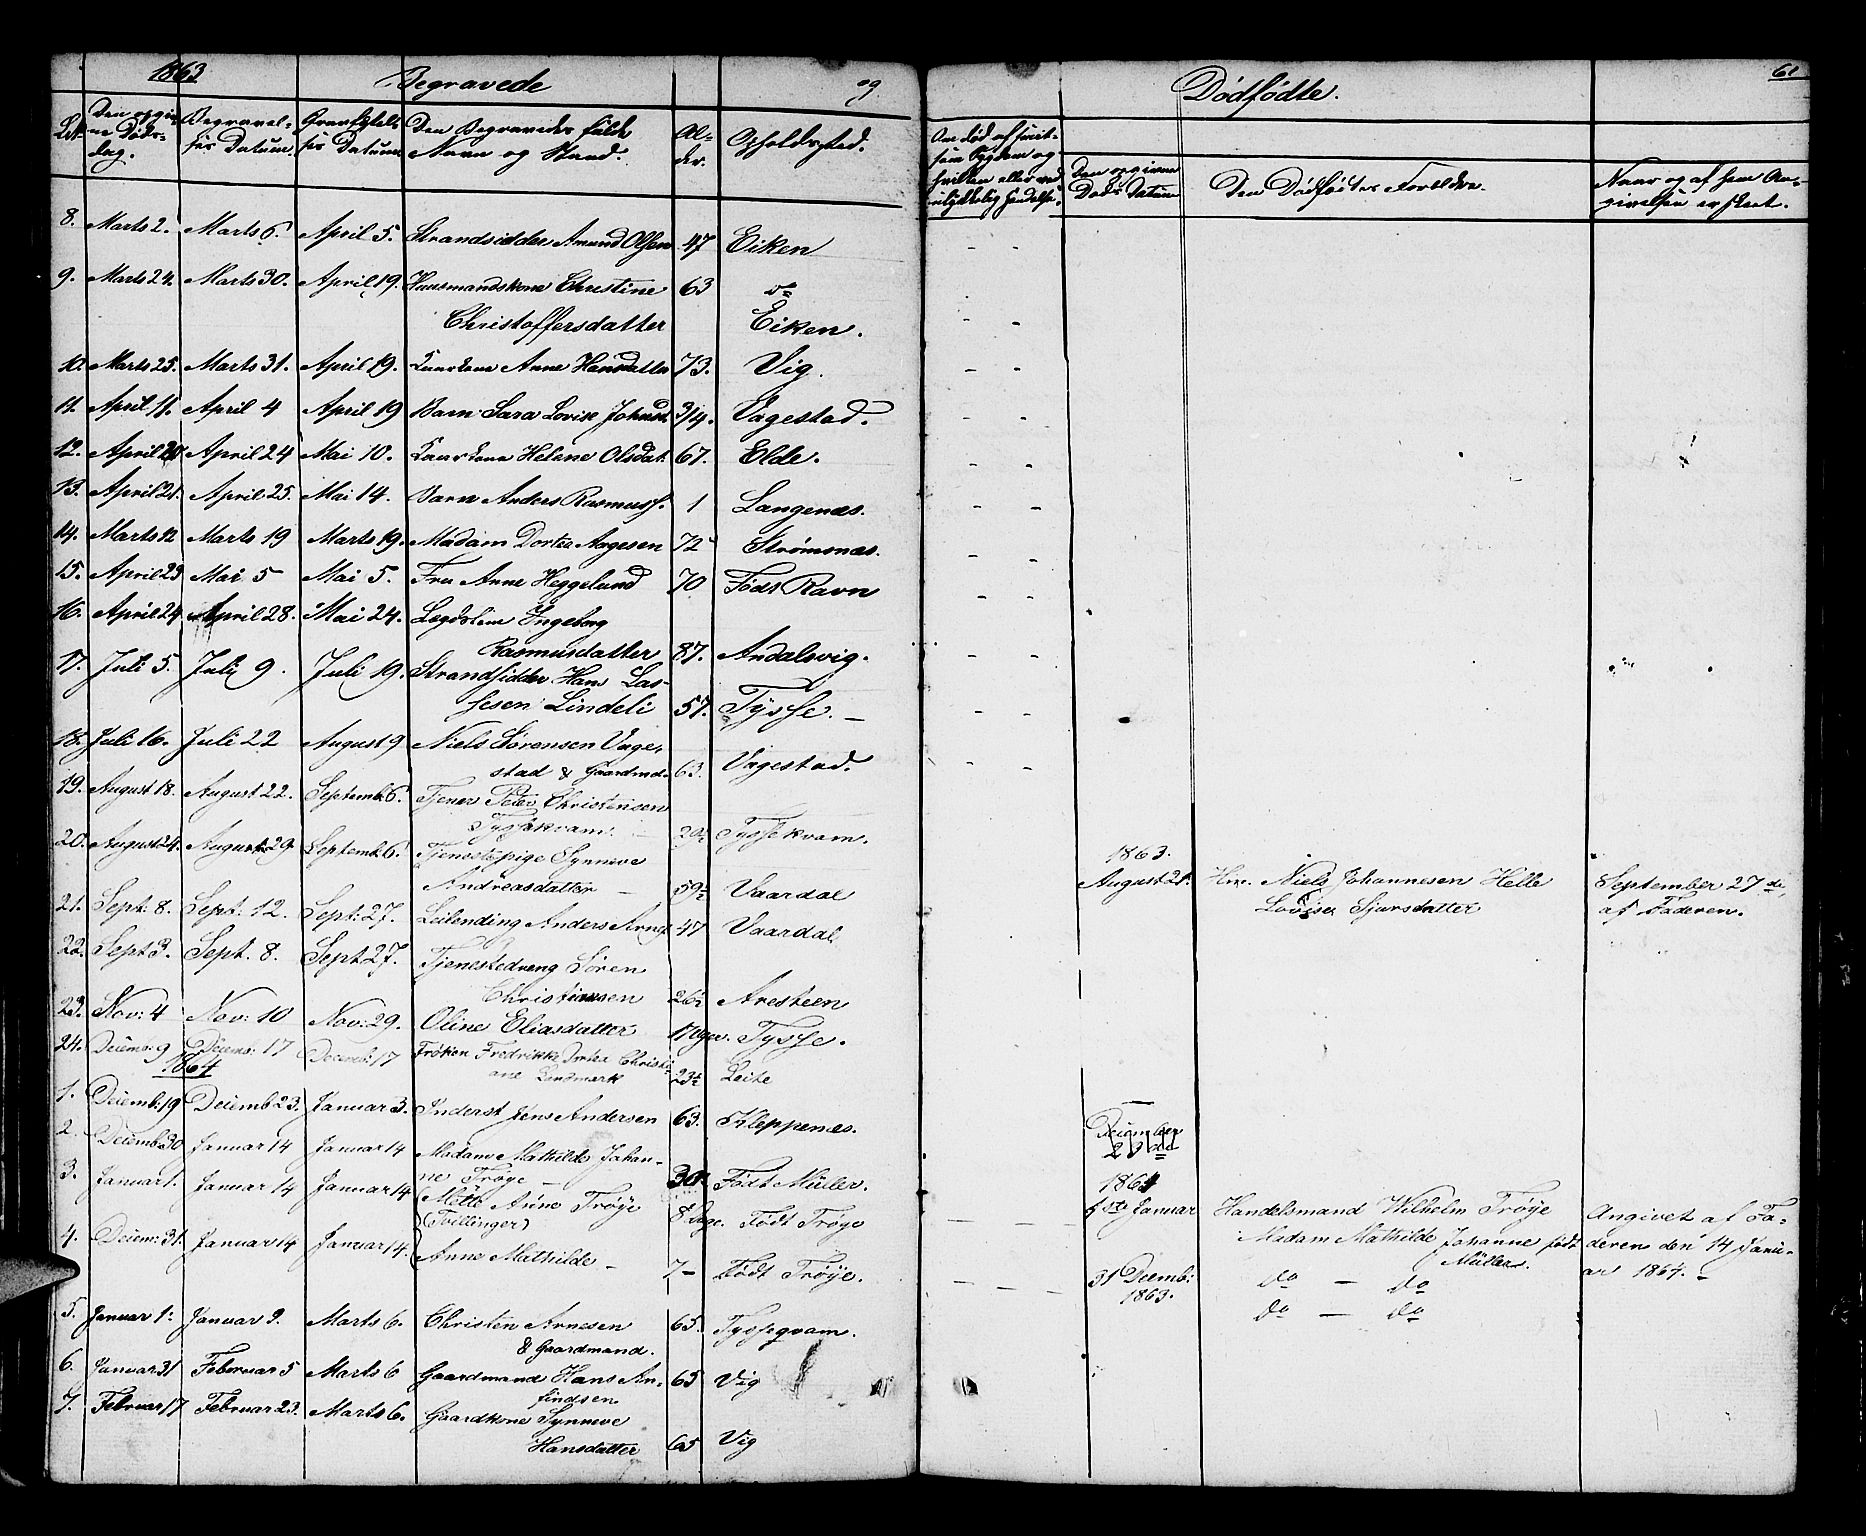 1863 Begravede og Dødfødte. 61
Den opgivne Døds-dag. Begravel-ses Datum. Den Begravedes fulde Navn og Stand. Al-der. Opholdssted.
Den opgivne Døds Datum Den Dødfødtes Forældre. Naar og af hvem An-givelsen er skeet.
8. Marts 2. Marts 6. April 5. Strandsidder Amund Olsen 47 Eiken
9. Marts 24. Marts 30. April 19. Huusmandskone Christine 63 do
Christoffersdatter Eiken.
10. Marts 25. Marts 31. April 19. Anne Hansdatter 73. Vig.
11. April 11. April 4 April 19 Barn Sara Lovise Johansd. 3/4. Vagestad.
12. April 20 April 24 Mai 10. Helene Olsdat. 67. Elde.
13. April 21. April 25. Mai 14. Barn Anders Rasmuss. 1 Langenæs.
14. Marts 12 Marts 19 Marts 19. Madam Dortea Aagesen 72 Strømsnæs.
15. April 23 Mai 5 Mai 5. Fru Anne Heggelund 70 Født Ravn
16. April 24. April 28. Mai 24. Lægdslem Ingeborg
Rasmusdatter 87. Andalsvig.
17. Juli 5. Juli 9. Juli 19. Strandsidder Hans Las-
sesen Lindeli 57. Tysse. —
18. Juli 16. Juli 22 August 9 Niels Sørensen Vage-
stad & Gaardmd. 63. Vagestad.
19. August 18. August 22. Septemb. 6. Tjener Peter Christensen
Tyssekvam. 29 Tyssekvam.
20. August 24. August 29 Septemb. 6. Tjenestepige Synneve
Andreasdatter — 59 Vaardal
1863.
August 21. Niels Johannesen Helle September 27de,
Lovise Sjursdatter af Faderen.
21. Sept: 8. Sept: 12. Sept: 27. Leilending Anders Arns. 47 Vaardal
22. Sept 3. Sept. 8. Sept 27. Tjenestedreng Søren
Christensen 26 Aresteen
23. Nov: 4 Nov: 10 Nov: 29. Oline Eliasdatter Uger. Tysse.
24. Decemb: 9 Decemb: 17 Decemb: 17 Frøken Fredrikke Dortea Christi-
ane Landmark 23 Leite
1864
1. Decemb: 19 Decemb 23. Januar 3. Inderst Jens Andersen 63. Kleppenæs.
2. Decemb: 30 Januar 14 Januar 14 Madam Mathilde Johan-
ne Trøye — 30 Født Müller.
December
23de
3. Januar 1. Januar 14 Januar 14 Mette Anne Trøye
(Tvillinger) 8 Dage. Født Trøye
4. Decem: 31. Januar 14 Januar 14. Anne Mathilde — 7 — Født Trøye.
1864
1ste Januar Handelsmand Wilhelm Trøye Angivet af Fa-
Madam Mathilde Johanne født deren den 14 Janu-
Müller. ar 1864. —
31 Decemb: do — do
1863. do — do
5. Januar 1: Januar 9. Marts 6. Christen Arnesen 65. Tysseqvam.
& Gaardmand.
6. Januar 31 Februar 5 Marts 6 Gaardmand Hans An-
findsen 65 Vig
7. Februar 17 Februar 23. Marts 6. Gaardkone Synneve
Hansdatter 65 Vig